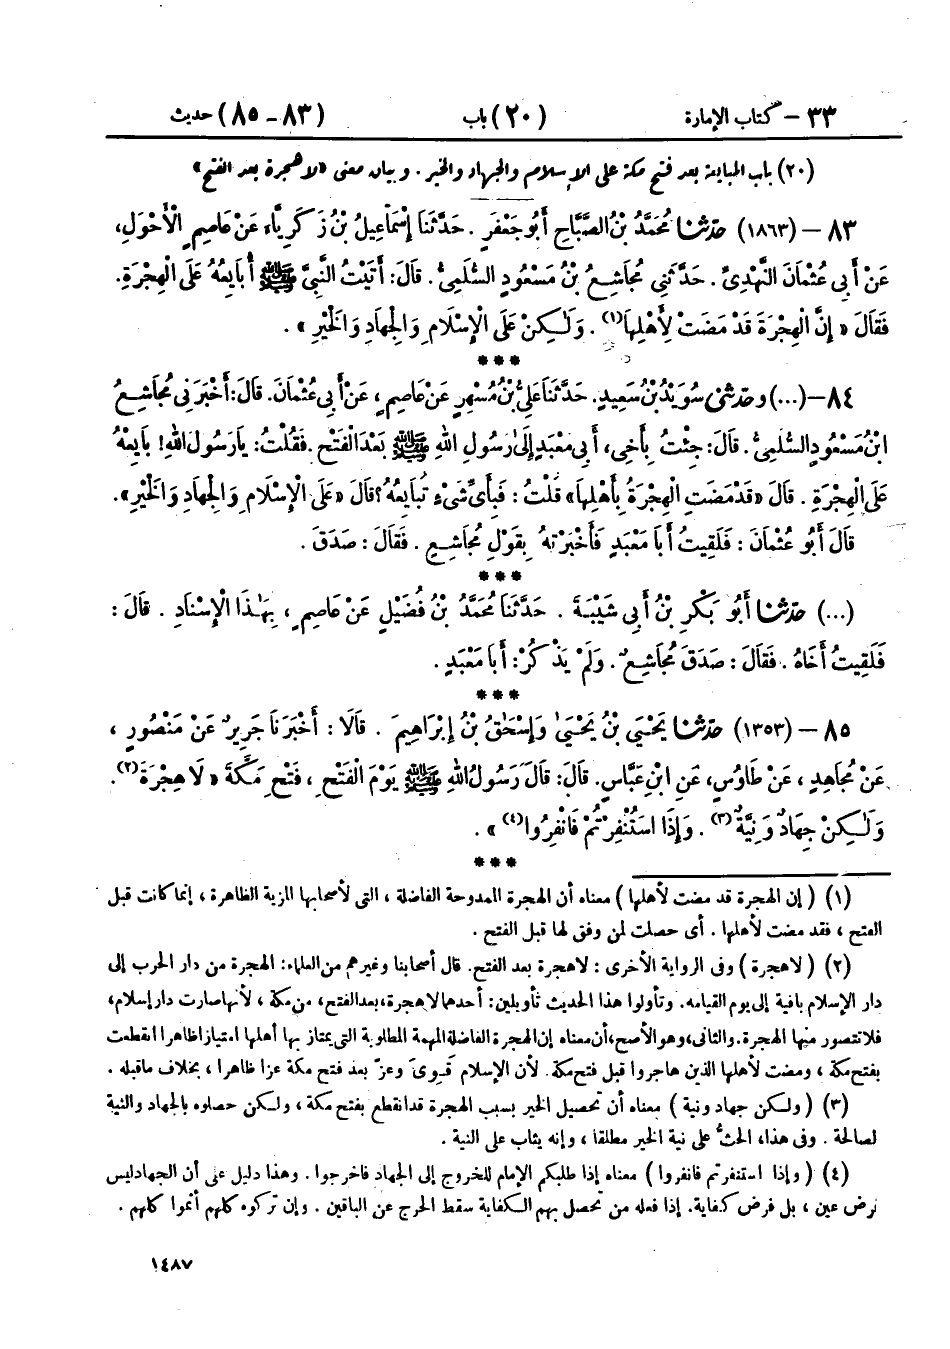 ٣٣ - كتاب الإمارة (٢٠) باب (٨٣ - ٨٥) حديث
(٢٠) باب المبايعة بعد فتح مكة على الإسلام والجهاد والخير . وبيان معنى «لا هجرة بعد الفتح»
٨٣ – (١٨٦٣) حَدَّثَنَا مُحَمَّدُ بْنُ الصَّبَّاحِ أَبُو جَعْفَرٍ . حَدَّثَنَا إِسْمَاعِيلُ بْنُ زَكَرِيَّاءَ عَنْ عَاصِمٍ الْأَحْوَلِ،
عَنْ أَبِي عُثْمَانَ النَّهْدِيِّ . حَدَّثَنِي مُجَاشِعُ بْنُ مَسْعُودٍ السُّلَمِيُّ . قَالَ: أَتَيْتُ النَّبِيَّ ﷺ أُبَايِعُهُ عَلَى الْهِجْرَةِ.
فَقَالَ « إِنَّ الْهِجْرَةَ قَدْ مَضَتْ لِأَهْلِهَا(١) . وَلَـٰكِنْ عَلَى الْإِسْلَامِ وَالْجِهَادِ وَالْخَيْرِ » .
***
٨٤ – (...) وحَدَّثَنِي سُوَيْدُ بْنُ سَعِيدٍ. حَدَّثَنَا عَلِيُّ بْنُ مُسْهِرٍ عَنْ عَاصِمٍ ، عَنْ أَبِي عُثْمَانَ. قَالَ: أَخْبَرَنِي مُجَاشِعُ
ابْنُ مَسْعُودٍ السُّلَمِيُّ . قَالَ: جِئْتُ بِأَخِي، أَبِي مَعْبَدٍ إِلَىٰ رَسُولِ اللهِ ﷺ بَعْدَ الْفَتْحِ . فَقُلْتُ: يَا رَسُولَ اللهِ! بَايِعْهُ
عَلَى الْهِجْرَةِ . قَالَ « قَدْ مَضَتِ الْهِجْرَةُ بِأَهْلِهَا» قُلْتُ : فَبِأَيِّ شَيْءٍ تُبَايِعُهُ؟ قَالَ « عَلَى الْإِسْلَامِ وَالْجِهَادِ وَالْخَيْرِ».
قَالَ أَبُو عُثْمَانَ : فَلَقِيتُ أَبَا مَعْبَدٍ فَأَخْبَرْتُهُ بِقَوْلِ مُجَاشِعٍ . فَقَالَ : صَدَقَ .
***
(...) حَدَّثَنَا أَبُو بَكْرِ بْنُ أَبِي شَيْبَةَ . حَدَّثَنَا مُحَمَّدُ بْنُ فُضَيْلٍ عَنْ عَاصِمٍ ، بِهَـٰذَا الْإِسْنَادِ . قَالَ :
فَلَقِيتُ أَخَاهُ . فَقَالَ : صَدَقَ مُجَاشِعٌ . وَلَمْ يَذْكُرْ: أَبَا مَعْبَدٍ .
***
٨٥ – (١٣٥٣) حَدَّثَنَا يَحْيَى بْنُ يَحْيَىٰ وَإِسْحَـٰقُ بْنُ إِبْرَاهِيمَ . قَالَا : أَخْبَرَنَا جَرِيرٌ عَنْ مَنْصُورٍ ،
عَنْ مُجَاهِدٍ ، عَنْ طَاوُسٍ، عَنِ ابْنِ عَبَّاسٍ. قَالَ: قَالَ رَسُولُ اللهِ ﷺ يَوْمَ الْفَتْحِ ، فَتْحِ مَكَّةَ « لَا هِجْرَةَ(٢) .
وَلَـٰكِنْ جِهَادٌ وَنِيَّةٌ(٣) . وَإِذَا اسْتُنْفِرْتُمْ فَانْفِرُوا(٤) » .
***
(١) ( إن الهجرة قد مضت لأهلها ) معناه أن الهجرة الممدوحة الفاضلة ، التي لأصحابها المزية الظاهرة ، إنما كانت قبل
الفتح ، فقد مضت لأهلها . أى حصلت لمن وفق لها قبل الفتح .
(٢) ( لا هجرة ) وفى الرواية الأخرى : لا هجرة بعد الفتح. قال أصحابنا وغيرهم من العلماء: الهجرة من دار الحرب إلى
دار الإسلام باقية إلى يوم القيامه. وتأولوا هذا الحديث تأويلين: أحدهما لا هجرة، بعد الفتح، من مكة ، لأنها صارت دار إسلام،
فلا تتصور منها الهجرة. والثانى، وهو الأصح، أن معناه إن الهجرة الفاضلة المهمة المطلوبة التى يمتاز بها أهلها امتيازا ظاهرا انقطعت
بفتح مكة ، ومضت لأهلها الذين هاجروا قبل فتح مكة. لأن الإسلام قَوِىَ وعزّ بعد فتح مكة عزا ظاهرا ، بخلاف ما قبله .
(٣) ( ولكن جهاد ونية ) معناه أن تحصيل الخير بسبب الهجرة قد انقطع بفتح مكة ، ولكن حصلوه بالجهاد والنية
لصالحة . وفى هذا، الحثُّ على نية الخير مطلقا ، وإنه يثاب على النية .
(٤) ( وإذا استنفرتم فانفروا ) معناه إذا طلبكم الإمام للخروج إلى الجهاد فاخرجوا . وهذا دليل على أن الجهاد ليس
فرض عين ، بل فرض كفاية. إذا فعله من تحصل بهم الكفاية سقط الحرج عن الباقين . وإن تركوه كلهم أثموا كلهم .
١٤٨٧